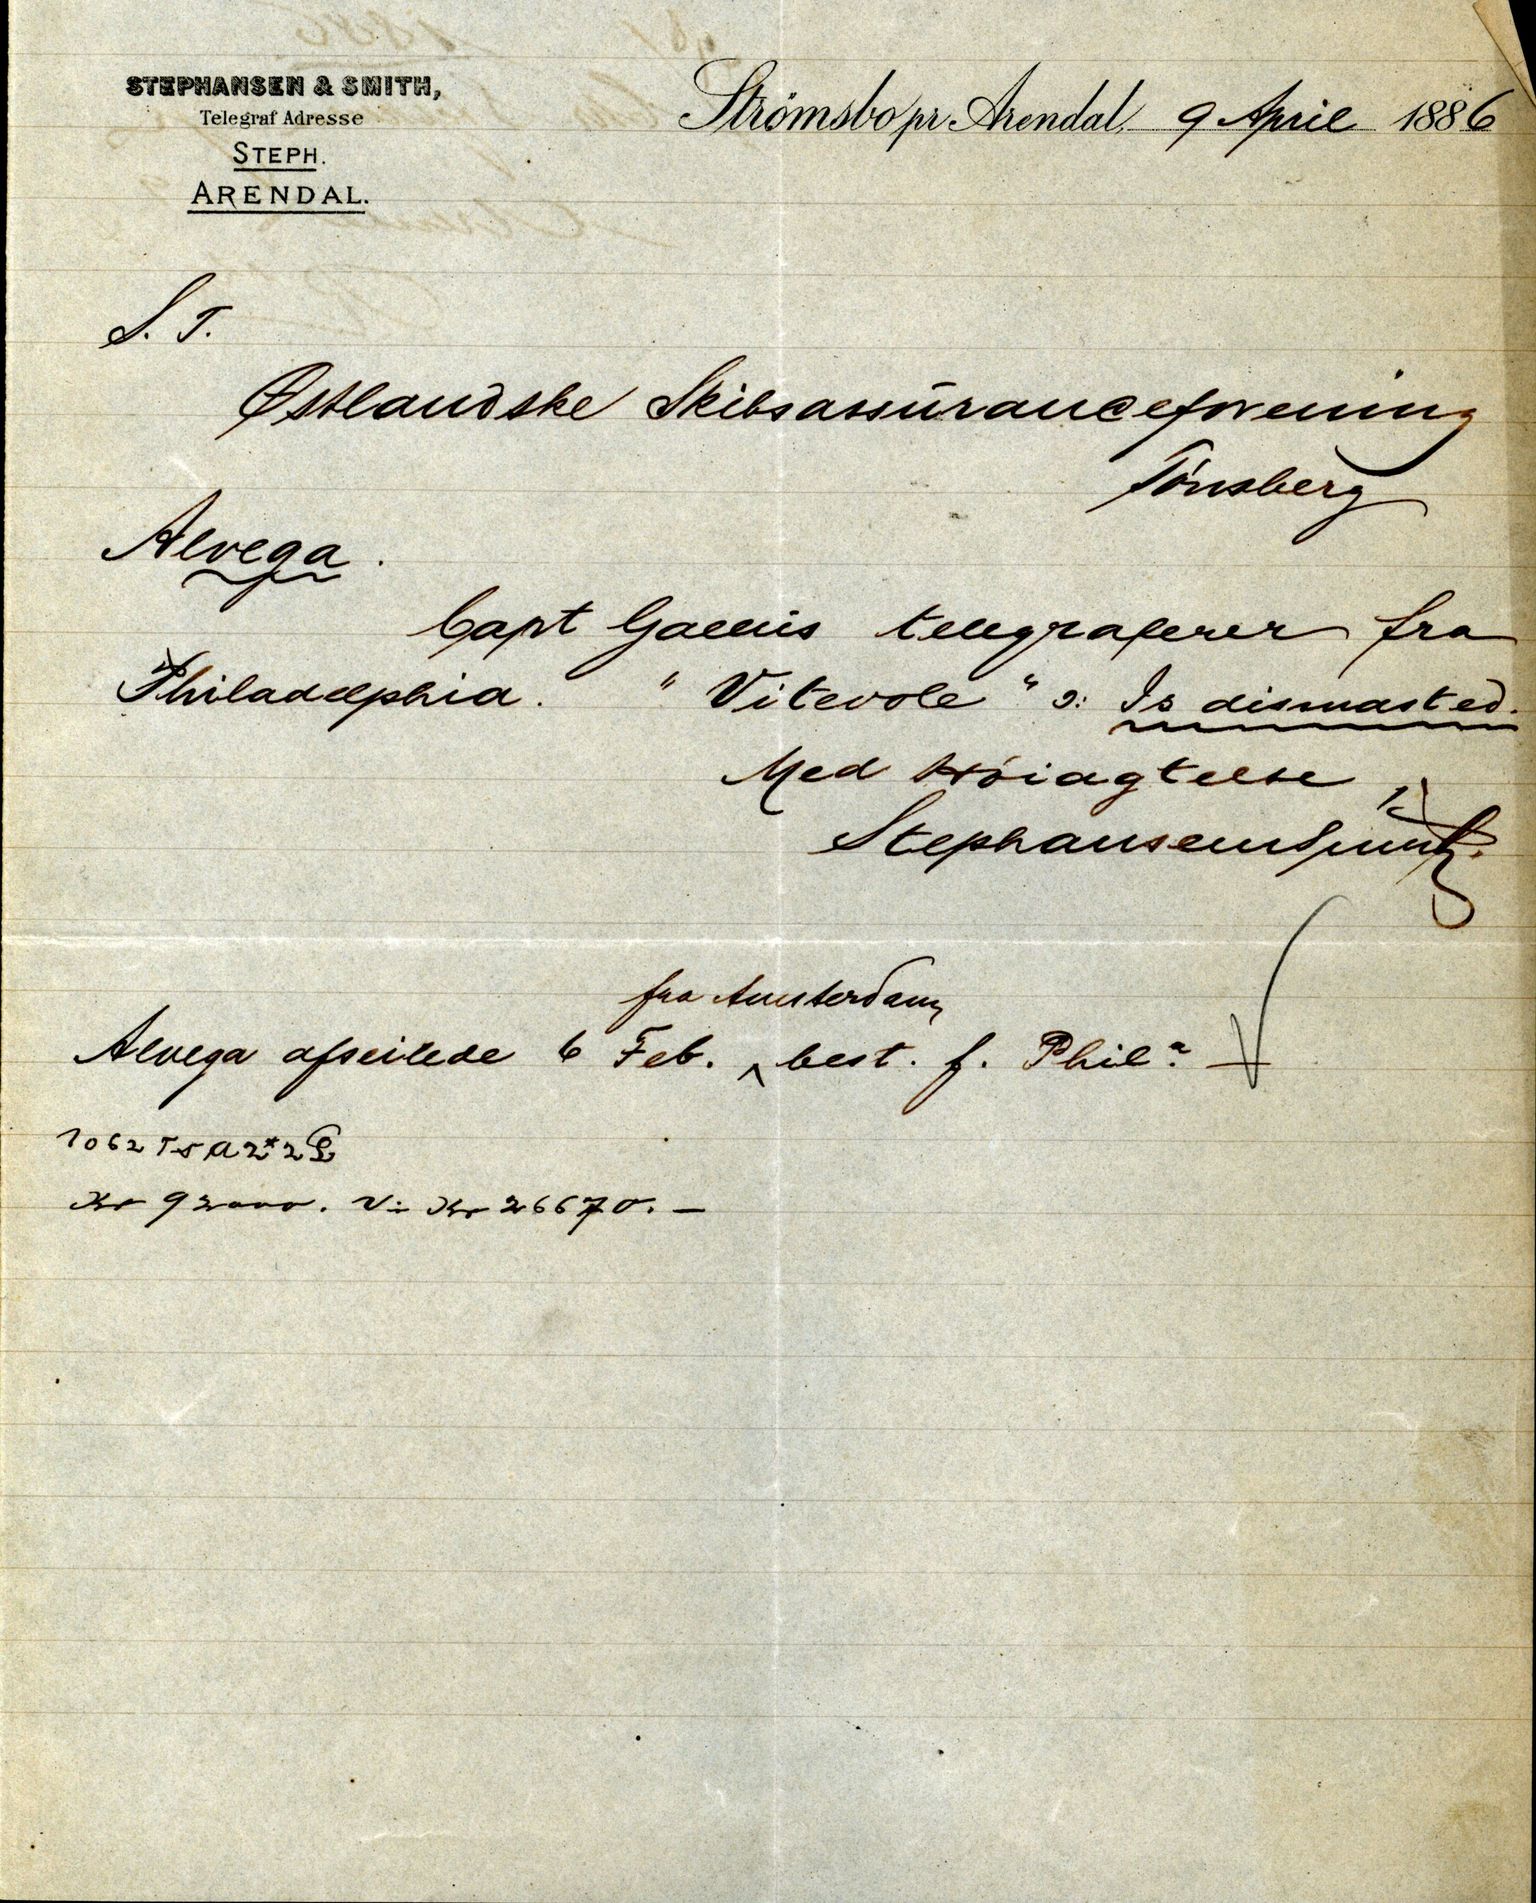 STEPHANSEN & SMITH,
Telegraf Adresse
STEPH.
ARENDAL.
Strömsbo pr. Arendal, 9 April 1886
S. T.
Østlandske Skibsassuranceforening
Tönsberg
Alvega.
Capt telegraferer fra
Philadelphia. "Vitevole" ɔ: Is dismasted.
Med Höiagtelse
Stephansen & Smith.
fra Amsterdam
Alvega afseilede 6 Feb. ^ best. f. Phil.ª —
1062 Ts A 2* 2
Kr 92000. Vi Kr 26670. —